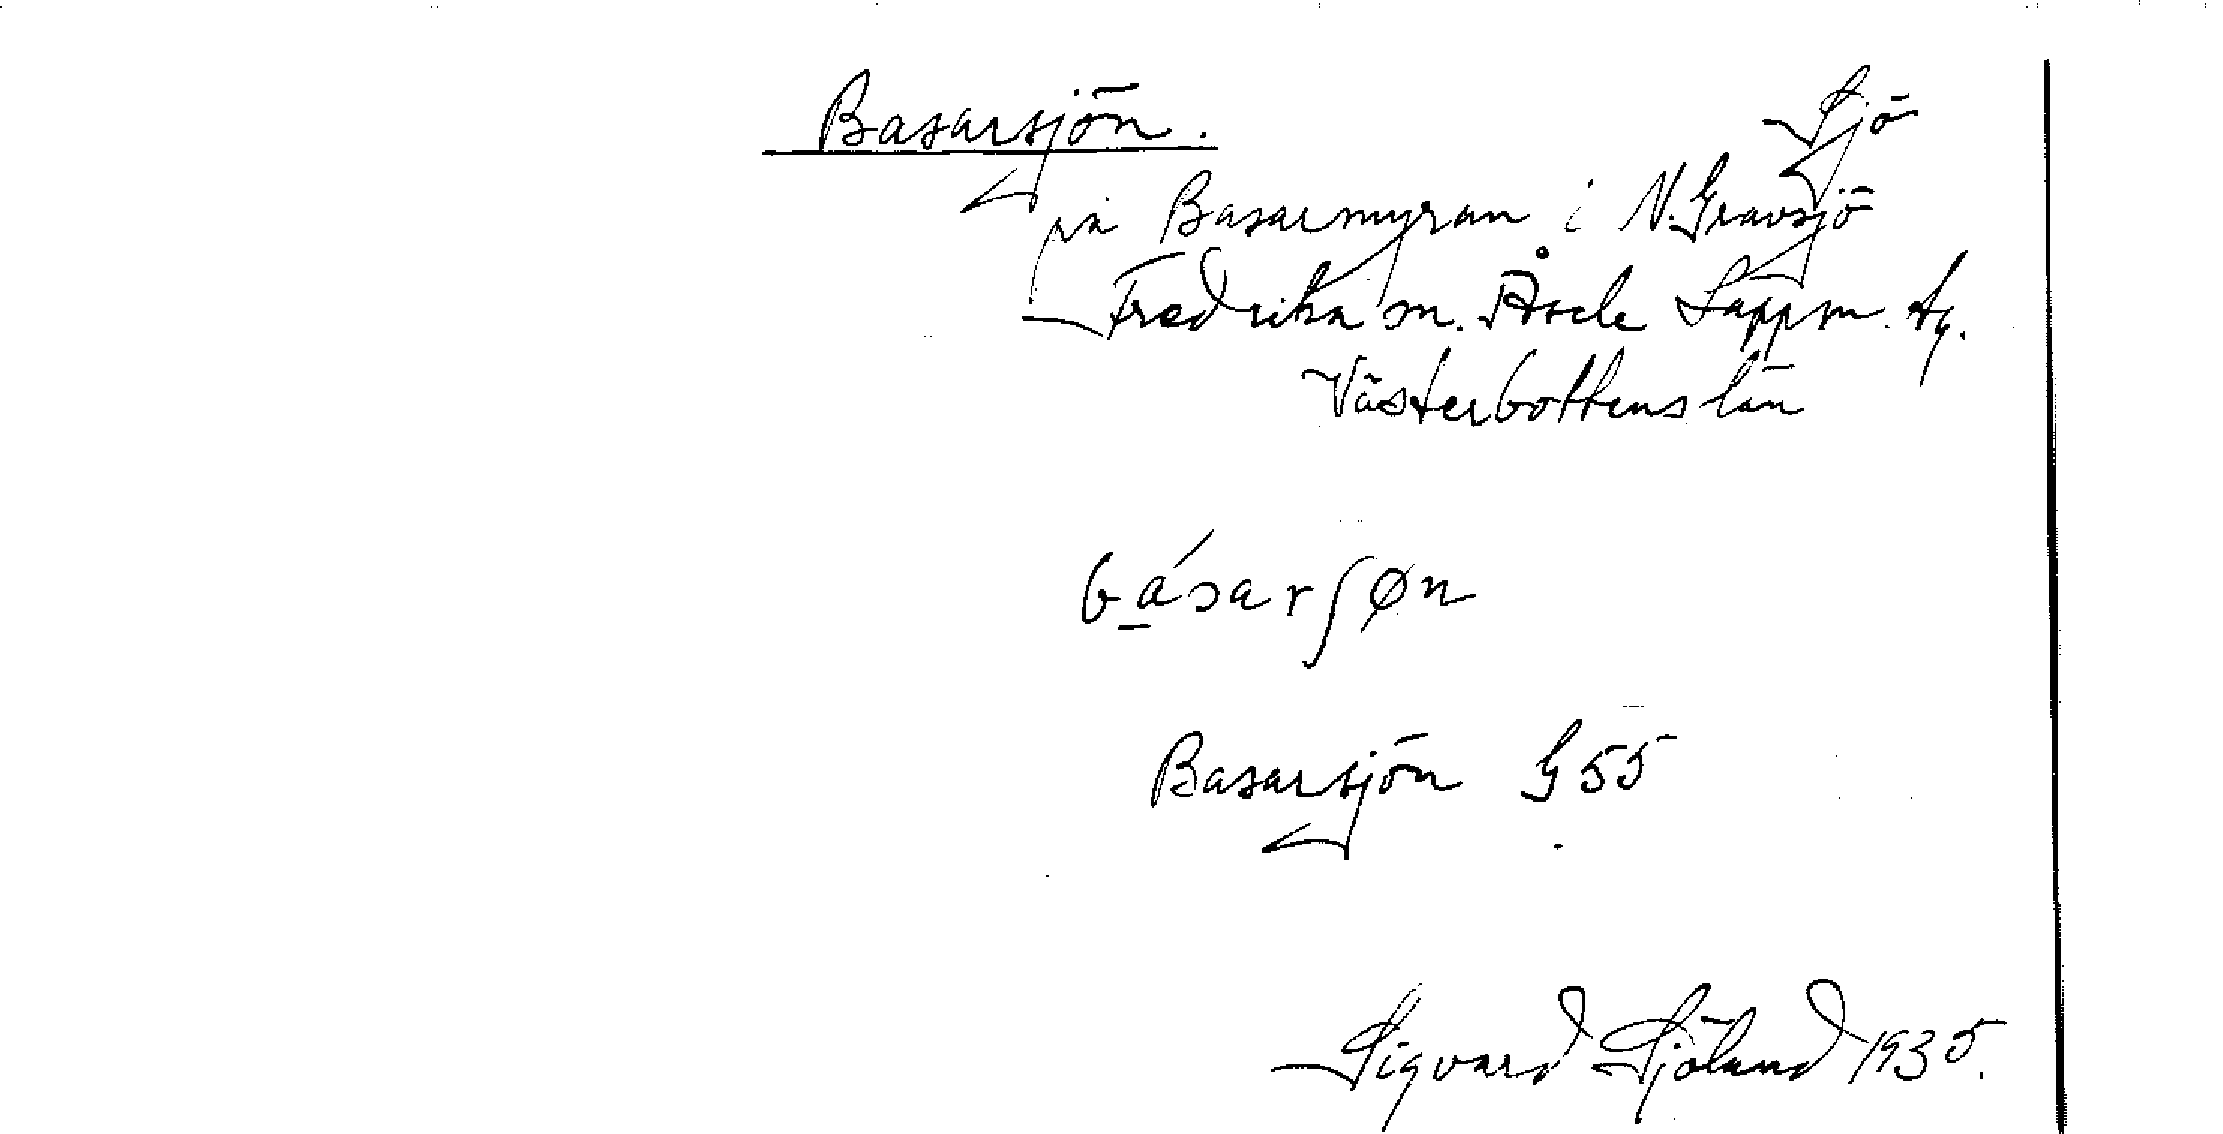 Basarsjön. Sjö
på Basarmyran i N. Gravsjö
Fredrika sn. Åsele Lappm. tg.
Västerbottens län
básarʃøn
Basarsjön G55
Sigvard Sjöland 1935.